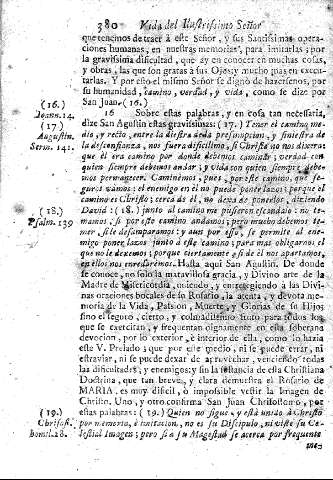 380 Vida del Ilustrissimo Señor
que tenemos de traer à este Señor, y sus Santissimas ope-
raciones humanas, en nuestras memorias, para imitarlas; por
la gravissima dificultad, que ay en conocer en muchas cosas,
y obras, las que son gratas à sus Ojos; y mucho mas en execu-
tarlas. Y por esto el mismo Señor se dignò de hazersenos, por
su humanidad, camino, verdad, y vida, como se dize por
San Juan. (16.)
(16.)
Joann. 14.
16 Sobre estas palabras, y en cosa tan necessaria,
dize San Agustin estas gravissimas: (17.) Tener el camino me-
(17.)
Augustin.
Serm. 141.
dio, y recto, entre la diestra de la presumpcion, y siniestra de
la desconfianza, nos fuera dificilimo, si Christo no nos dixera:
que èl era camino por donde debemos caminar; verdad con
quien siempre debemos andar; y vida con quien siempre debe-
mos permanecer. Caminèmos, pues, por este camino, que se-
guros vamos: el enemigo en èl no puede poner lazos; porque el
camino es Christo; cerca de èl, no dexa de ponerlos, diziendo
David: (18.) junto al camino me pusieron escandalo: no te-
(18.)
Psalm. 139
mamos, si por este camino andamos; pero mucho debemos te-
mer, si le desamparamos: y aun por esso, se permite al ene-
migo poner lazos junto à este camino; para mas obligarnos el
que no le dexemos; porque ciertamente si de èl nos apartamos,
en ellos nos enredaremos. Hasta aqui San Agustin. De don-
de se conoce, no solo la maravillosa gracia, y Divino arte de la
Madre de Misericordia, uniendo, y entretegiendo à las Divi-
nas oraciones bocales de su Rosario, la atenta, y devota memo-
ria de la Vida, Passion, Muerte, y Glorias de su Hijo:
sino el seguro, cierto, y colmadissimo fruto para todos los
que se exercitan, y frequentan dignamente en esta soberana
devocion, por lo exterior, è interior de ella, como lo hazia
este V. Prelado; que por este medio, ni se puede errar, ni
estraviar, ni se puede dexar de aprovechar, venciendo todas
las dificultades, y enemigos; sin la sustancia de esta Christiana
Doctrina, que tan breve, y clara demuestra el Rosario de
MARIA, es muy dificil, ò impossible vestir la Imagen de
Christo. Uno, y otro confirma San Juan Chrisostomo, por
(19.)
Chrisost.
homil. 28.
estas palabras: (19.) Quien no sigue, y està unido à Christo
por memoria, è imitacion, no es su Discipulo, ni viste su Ce-
lestial Imagen; pero si à su Magestad se acerca por frequente